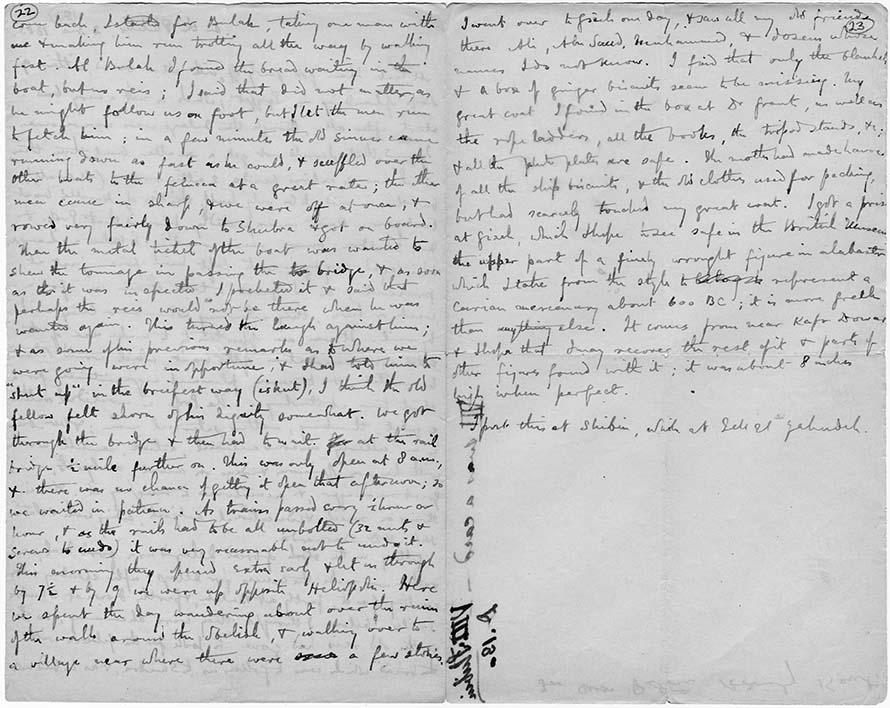 22
come back, I started for Bulak, taking one man with
me & making him run trotting all the way by walking
fast. At Bulak I found the bread waiting in the
boat, but no reis; I said that did not matter, as
he might follow us on foot, but I let the men run
to fetch him; in a few minutes the old sinner came
running down as fast as he could, & scuffled over the
other boats to the felucca at a great rate; the other
men came in sharp & we were off at once; &
rowed very fairly down to Shubra & got on board.
Then the metal ticket of the boat was wanted to
shew the tonnage in passing the bridge, & as soon
as it was inspected I pocketed it & said that
perhaps the reis would not be there when he was
wanted again. This turned the laugh against him;
& as some of his previous remarks as to where we
were going were inopportune, & I had told him to
"shut up" in the briefest way (iskut), I think the old
fellow felt shorn of his dignity somewhat. We got
through the bridge & then had to wait at the rail
bridge ½ mile further on. This was only open at 8 a.m.,
& there was no chance of getting it open that afternoon; so
we waited in patience. As trains passed every ½ hour or
hour, & as the rails had to be all unbolted (32 nuts &
screws to undo) it was very reasonable not to undo it.
This morning they opened extra early & let us through
by 7½ & by 9 we were up opposite Heliopolis. Here
we spent the day wandering about over the ruins
of the walls around the obelisk, & walking over to
a village near where there were a few stones.
23
I went over to Gizeh one day, & saw all my old friends
there Ali, Abu Saud, Muhammed, & dozens whose
names I do not know. I find that only the blankets
& a box of ginger biscuits seem to be missing. My
great coat I found in the box at Dr Grant, as well as
the rope ladders, all the books, the tripod stands, &c;
& all the photo plates are safe. The moths had made havoc
of all the ship biscuits, & the old clothes used for packing,
but had scarcely touched my great coat. I got a prize
at Gizeh, which I hope to see safe in the British Museum
the upper part of a finely wrought figure in alabaster
which I take from the style to represent a
Carian mercenary about 600 BC; it is more Greek
than anything else. It comes from near Kafr Dowar
& I hope that I may recover the rest of it & parts of
other figures found with it; it was about 8 inches
high when perfect.
I post this at Shibin, which at Tell el Yahudeh.